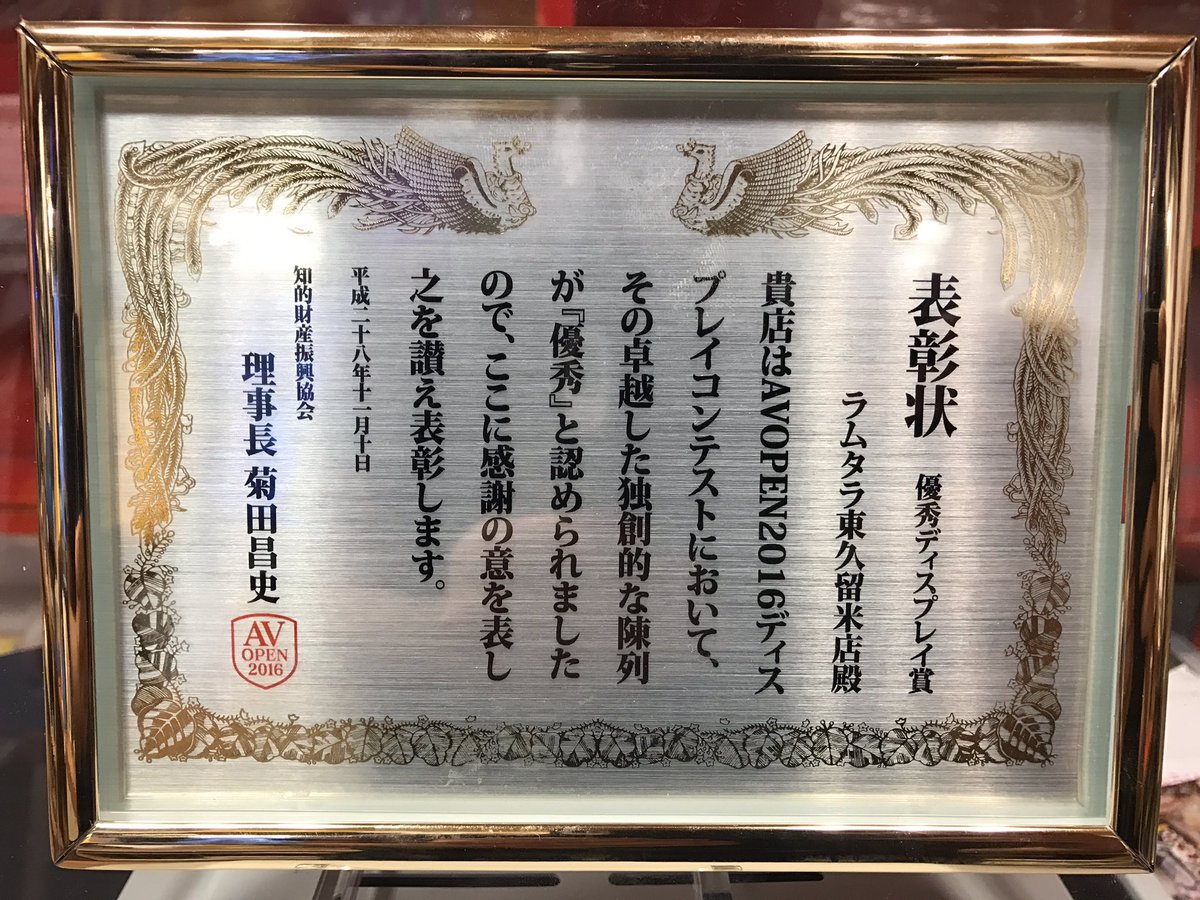 表彰状 優秀ディスプレイ賞
ラムタラ東久留米店殿
貴店はAVOPEN2016ディス
プレイコンテストにおいて、
その卓越した独創的な陳列
が『優秀』と認められました
ので、ここに感謝の意を表し
之を讃え表彰します。
平成二十八年十一月十日
知的財産振興協会
理事長 菊田昌史
AV
OPEN
2016